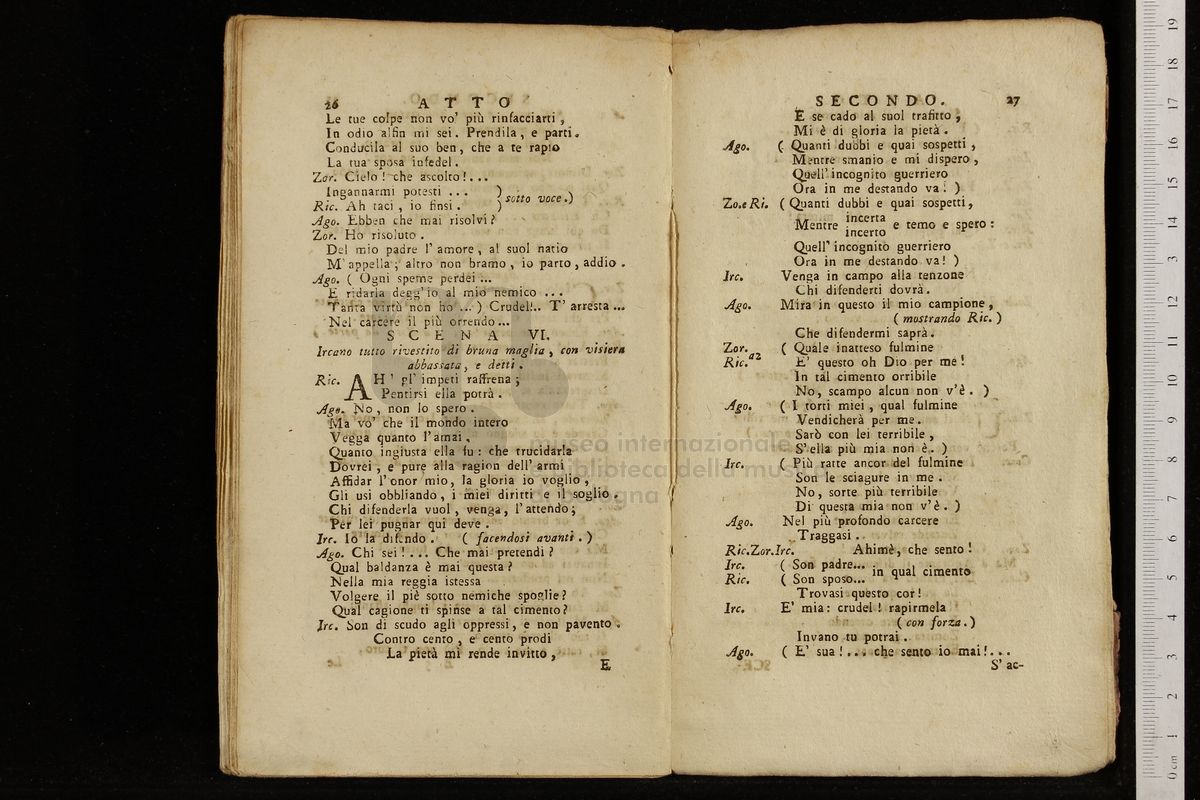 26 ATTO
Le tue colpe non vo' più rinfacciarti,
In odio alfin mi sei. Prendila, e parti.
Conducila al suo ben, che a te rapìo
La tua sposa infedel.
Zor. Cielo! che ascolto!...
Ingannarmi potesti ... )
Ric. Ah taci, io finsi. ) sotto voce.)
Ago. Ebben che mai risolvi?
Zor. Ho risoluto.
Del mio padre l'amore, al suol natìo
M'appella; altro non bramo, io parto, addio.
Ago. ( Ogni speme perdei ...
E ridarla degg'io al mio nemico ...
Tanta virtù non ho ... ) Crudel!.. T'arresta ...
Nel carcere il più orrendo...
SCENA VI.
Ircano tutto rivestito di bruna maglia, con visiera
abbassata, e detti.
Ric. AH! gl'impeti raffrena;
Pentirsi ella potrà.
Ago. No, non lo spero.
Ma vo' che il mondo intero
Vegga quanto l'amai,
Quanto ingiusta ella fu: che trucidarla
Dovrei, e pure alla ragion dell'armi
Affidar l'onor mio, la gloria io voglio,
Gli usi obbliando, i miei diritti e il soglio.
Chi difenderla vuol, venga, l'attendo;
Per lei pugnar qui deve.
Irc. Io la difendo. ( facendosi avanti. )
Ago. Chi sei!.... Che mai pretendi?
Qual baldanza è mai questa?
Nella mia reggia istessa
Volgere il piè sotto nemiche spoglie?
Qual cagione ti spinse a tal cimento?
Irc. Son di scudo agli oppressi, e non pavento.
Contro cento, e cento prodi
La pietà mi rende invitto,
E
SECONDO. 27
E se cado al suol trafitto,
Mi è di gloria la pietà.
Ago. ( Quanti dubbi e quai sospetti,
Mentre smanio e mi dispero,
Quell'incognito guerriero
Ora in me destando va! )
Zo.e Ri. ( Quanti dubbi e quai sospetti,
Mentre incerta e temo e spero:
incerto
Quell'incognito guerriero
Ora in me destando va! )
Irc. Venga in campo alla tenzone
Chi difenderti dovrà.
Ago. Mira in questo il mio campione,
( mostrando Ric. )
Che difendermi saprà.
Zor. ( Quale inatteso fulmine
Ric. a2 E' questo oh Dio per me!
In tal cimento orribile
No, scampo alcun non v'è. )
Ago. ( I torti miei, qual fulmine
Vendicherà per me.
Sarò con lei terribile,
S'ella più mia non è. )
Irc. ( Più ratte ancor del fulmine
Son le sciagure in me.
No, sorte più terribile
Di questa mia non v'è. )
Ago. Nel più profondo carcere
Traggasi.
Ric.Zor.Irc. Ahimè, che sento!
Irc. ( Son padre... in qual cimento
Ric. ( Son sposo...
Trovasi questo cor!
Irc. E' mia: crudel! rapirmela
( con forza. )
Invano tu potrai.
Ago. ( E' sua!... che sento io mai!...
S'ac-
museo internazionale
biblioteca della musica
bologna
0 cm 1 2 3 4 5 6 7 8 9 10 11 12 13 14 15 16 17 18 19